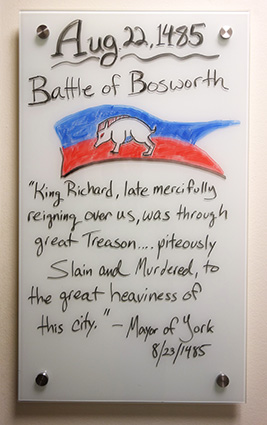 Aug. 22, 1485
Battle of Bosworth
"King Richard, late mercifully
reigning over us, was through
great Treason.... piteously
Slain and Murdered, to
the great heaviness of
this city." – Mayor of York
8/23/1485